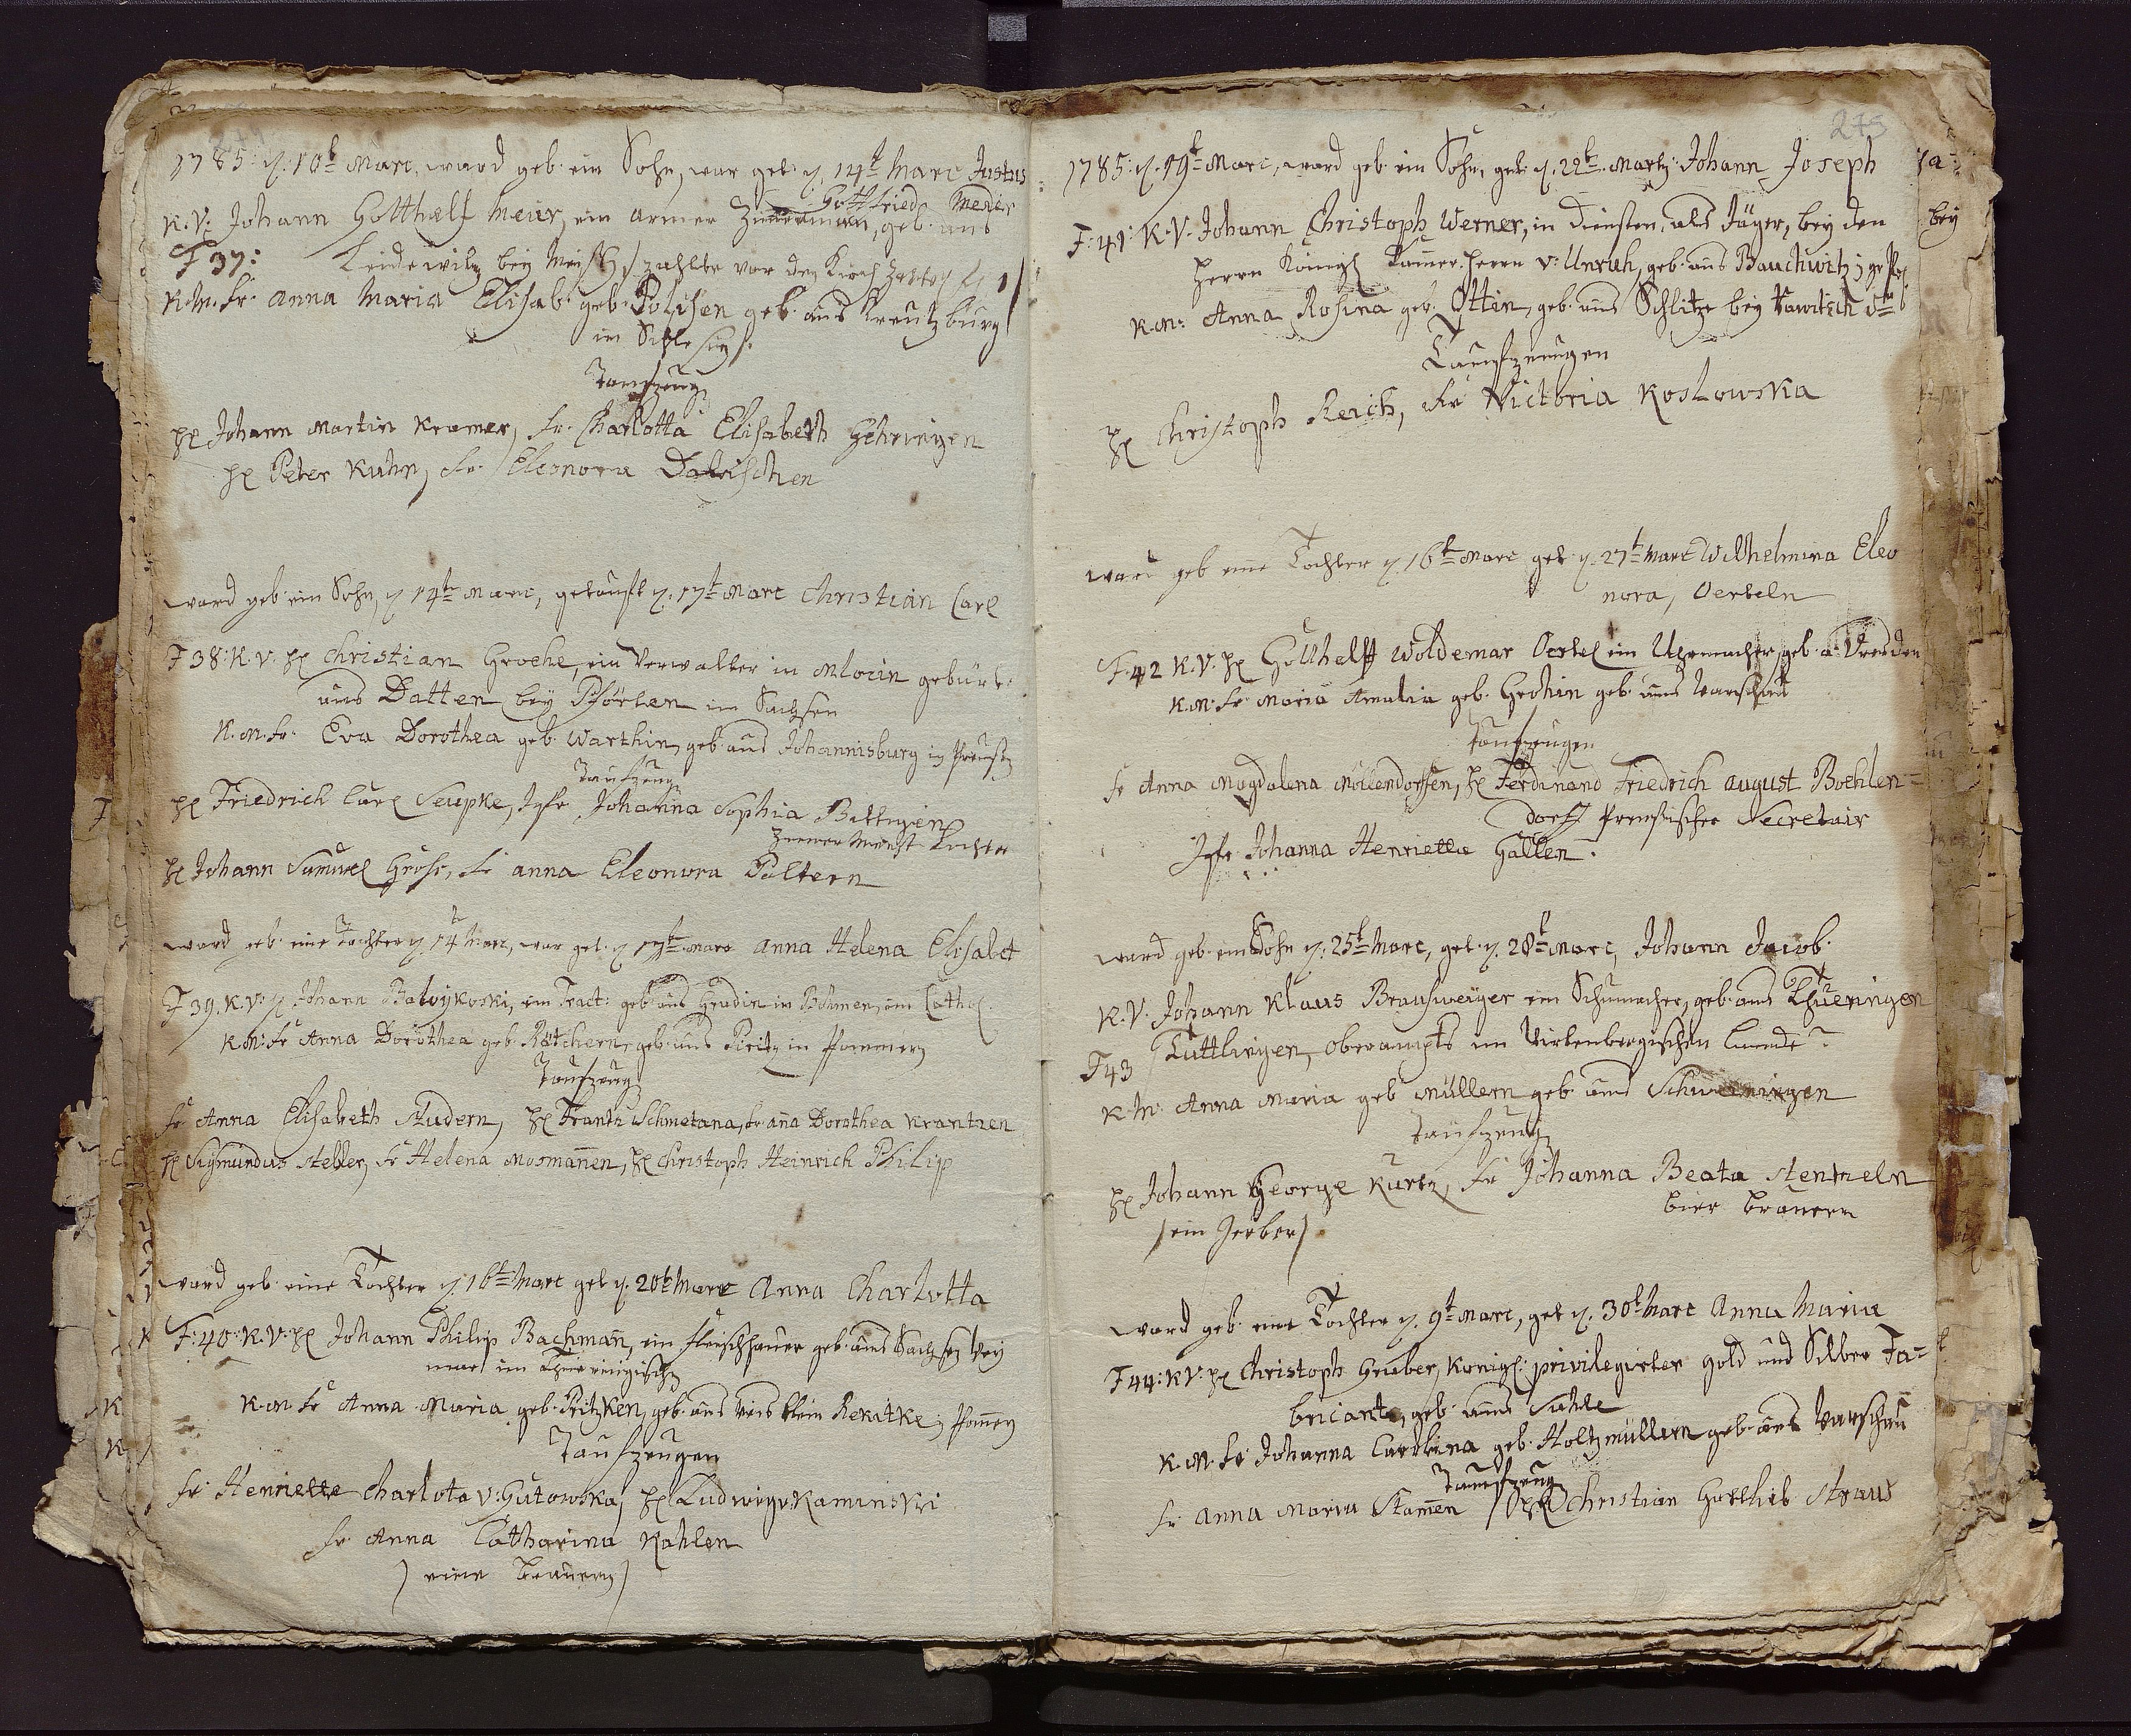 1785: d. 10t Marc, ward geb. ein Sohn, war get. d. 14t Marc Justus
Gottfried Meuer
K. V: Johann Gotthelf Meier, ein armer Zimmerman, geb. aus
F 37: bey zahlte vor den
K. M. fr. Anna Maria Elisab. geb. Polisen geb. aus Kreutzburg
in Schlesien.
Taufzeug
H Johann Martin Kramer, fr. Charlotta Elisabeth Gehringen
H Peter Kuhn, fr. Eleonora
ward geb. ein Sohn, d 14t Marc, getauft d. 17t Marc Christian Carl
F 38: K. V. H Christian Groehe, ein Verwalter in Mlocin gebürt.
aus Datten bey Pförten in Sachsen
K. M. fr. Eva Dorothea geb. Warthin, geb. aus Johannisburg in Preuß
Taufzeug
H Friedrich Carl Seupke, Jgfr Johanna Sophia Bettigen
Tochter
H Johann Samuel Grose, fr anna Eleonora Poltern
ward geb. eine Tochter d. 14t Marc, war get. d 17t Marc Anna Helena Elisabet
F 39. K. V: H Johann ein Tract: geb. aus in Böhmen, ein Cathol.
K. M: fr Anna Dorothea geb. Rötchern, geb. aus Piritz in Pommern
Taufzeug
fr Anna Elisabeth Studern, H Frantz Schmetana, fr aña Dorothea Krantzen
H Sigmundus Steller, fr Helena Mosmañen, H Christoph Heinrich Philip
ward geb. eine Tochter d. 16t Marc get d. 20t Marc Anna Charlotta
F: 40: K. V: H Johann Philip Bachmañ, ein Fleischhauer geb. aus Sachsen Wey
mar im Thueringisch
K. M fr Anna Maria geb. Pritzken, geb. aus klein Rekitke, Pomern
Taufzeugen
fr Henriette Charlota v: Gutowska, H Ludwig v. Kaminski
fr Anna Catharina Kahlen
) eine Brauern )
273
1785: d. 19t Marc, ward geb. ein Sohn, get. d. 22t Martz: Johann Joseph
F: 41: K. V. Johann Christoph Werner, in diensten, als Jäger, bey den
Herrn Königl Kamer-Herrn v: Unruh, geb. aus Bauchwitz
K. M: Anna Rosina geb. Otten, geb. aus Schlitze bey
Taufzeugen
H Christoph Reich, fr Victoria Koslowska
ward geb eine Tochter d 16t Marc get d. 27t Marc Wilhelmina Eleo
nora, Oerteln
F. 42 K. V. H Gotthelff Woldemar Oertel ein Uhrmacher, geb. a Dresden
K. M: fr Maria Amalia geb. Grohin geb. aus Warschau
Taufzeugen
fr Anna Magdalena Möllendorffen, H Ferdinand Friedrich August Boehlen=
dorff Preussischer Secretair
Jgfr Johanna Henriette Gallen.
ward geb. ein Sohn d. 25t Marc, get. d. 28t Marc, Johann Jacob.
K. V. Johann Klaus Braushweiger ein Schumacher, geb. aus Thueringen
F 43 Tuttlingen, oberampts im Virtenbergischen Lande
K. M. Anna Maria geb Müllern geb aus Schweningen
Taufzeug
H Johann George Kurtz, fr Johanna Beata Stentzeln
) ein Gerber) Bier Brauern
ward geb. eine Tochter d. 9t Marc, get d. 30t Marc Anna Maria
F 44: K V: H Christoph Gruber, Königl: privilegirter Gold und Silber Fa=
bricant, geb. aus Suhle
K. M. fr Johanna Carolina geb. Holtzmüllern geb. aus Warschau
Taufzeug
fr Anna Maria Stamen, H Christian Gottlieb Straus